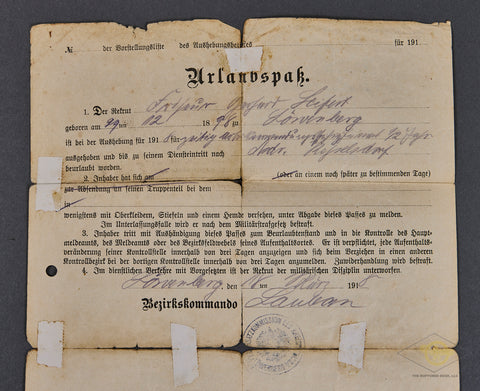 № der Vorstellungsliste des Aushebungsbezirks für 191
Urlaubspaß.
1. Der Rekrut Friseur Gerhard Seifert
geboren am 29ten 02 1898 zu Löwenberg
ist bei der Aushebung für 1918
ausgehoben und bis zu seinem Diensteintritt nach
beurlaubt worden.
2. Inhaber hat sich am (oder an einem noch später zu bestimmenden Tage)
zur Absendung an seinen Truppenteil bei dem
in
wenigstens mit Oberkleidern, Stiefeln und einem Hemde versehen, unter Abgabe dieses Passes zu melden.
Im Unterlassungsfalle wird er nach dem Militärstrafgesetz bestraft.
3. Inhaber tritt mit Aushändigung dieses Passes zum Beurlaubtenstand und in die Kontrolle des Haupt-
meldeamts, des Meldeamts oder des Bezirksfeldwebels seines Aufenthaltsortes. Er ist verpflichtet, jede Aufenthalts-
veränderung seiner Kontrollstelle innerhalb von drei Tagen anzuzeigen und sich beim Verziehen in einen anderen
Kontrollbezirk bei der dortigen Kontrollstelle innerhalb von drei Tagen anzumelden. Zuwiderhandlung wird bestraft.
4. Im dienstlichen Verkehr mit Vorgesetzten ist der Rekrut der militärischen Disziplin unterworfen.
Löwenberg, den März 1918
Bezirkskommando Lauban